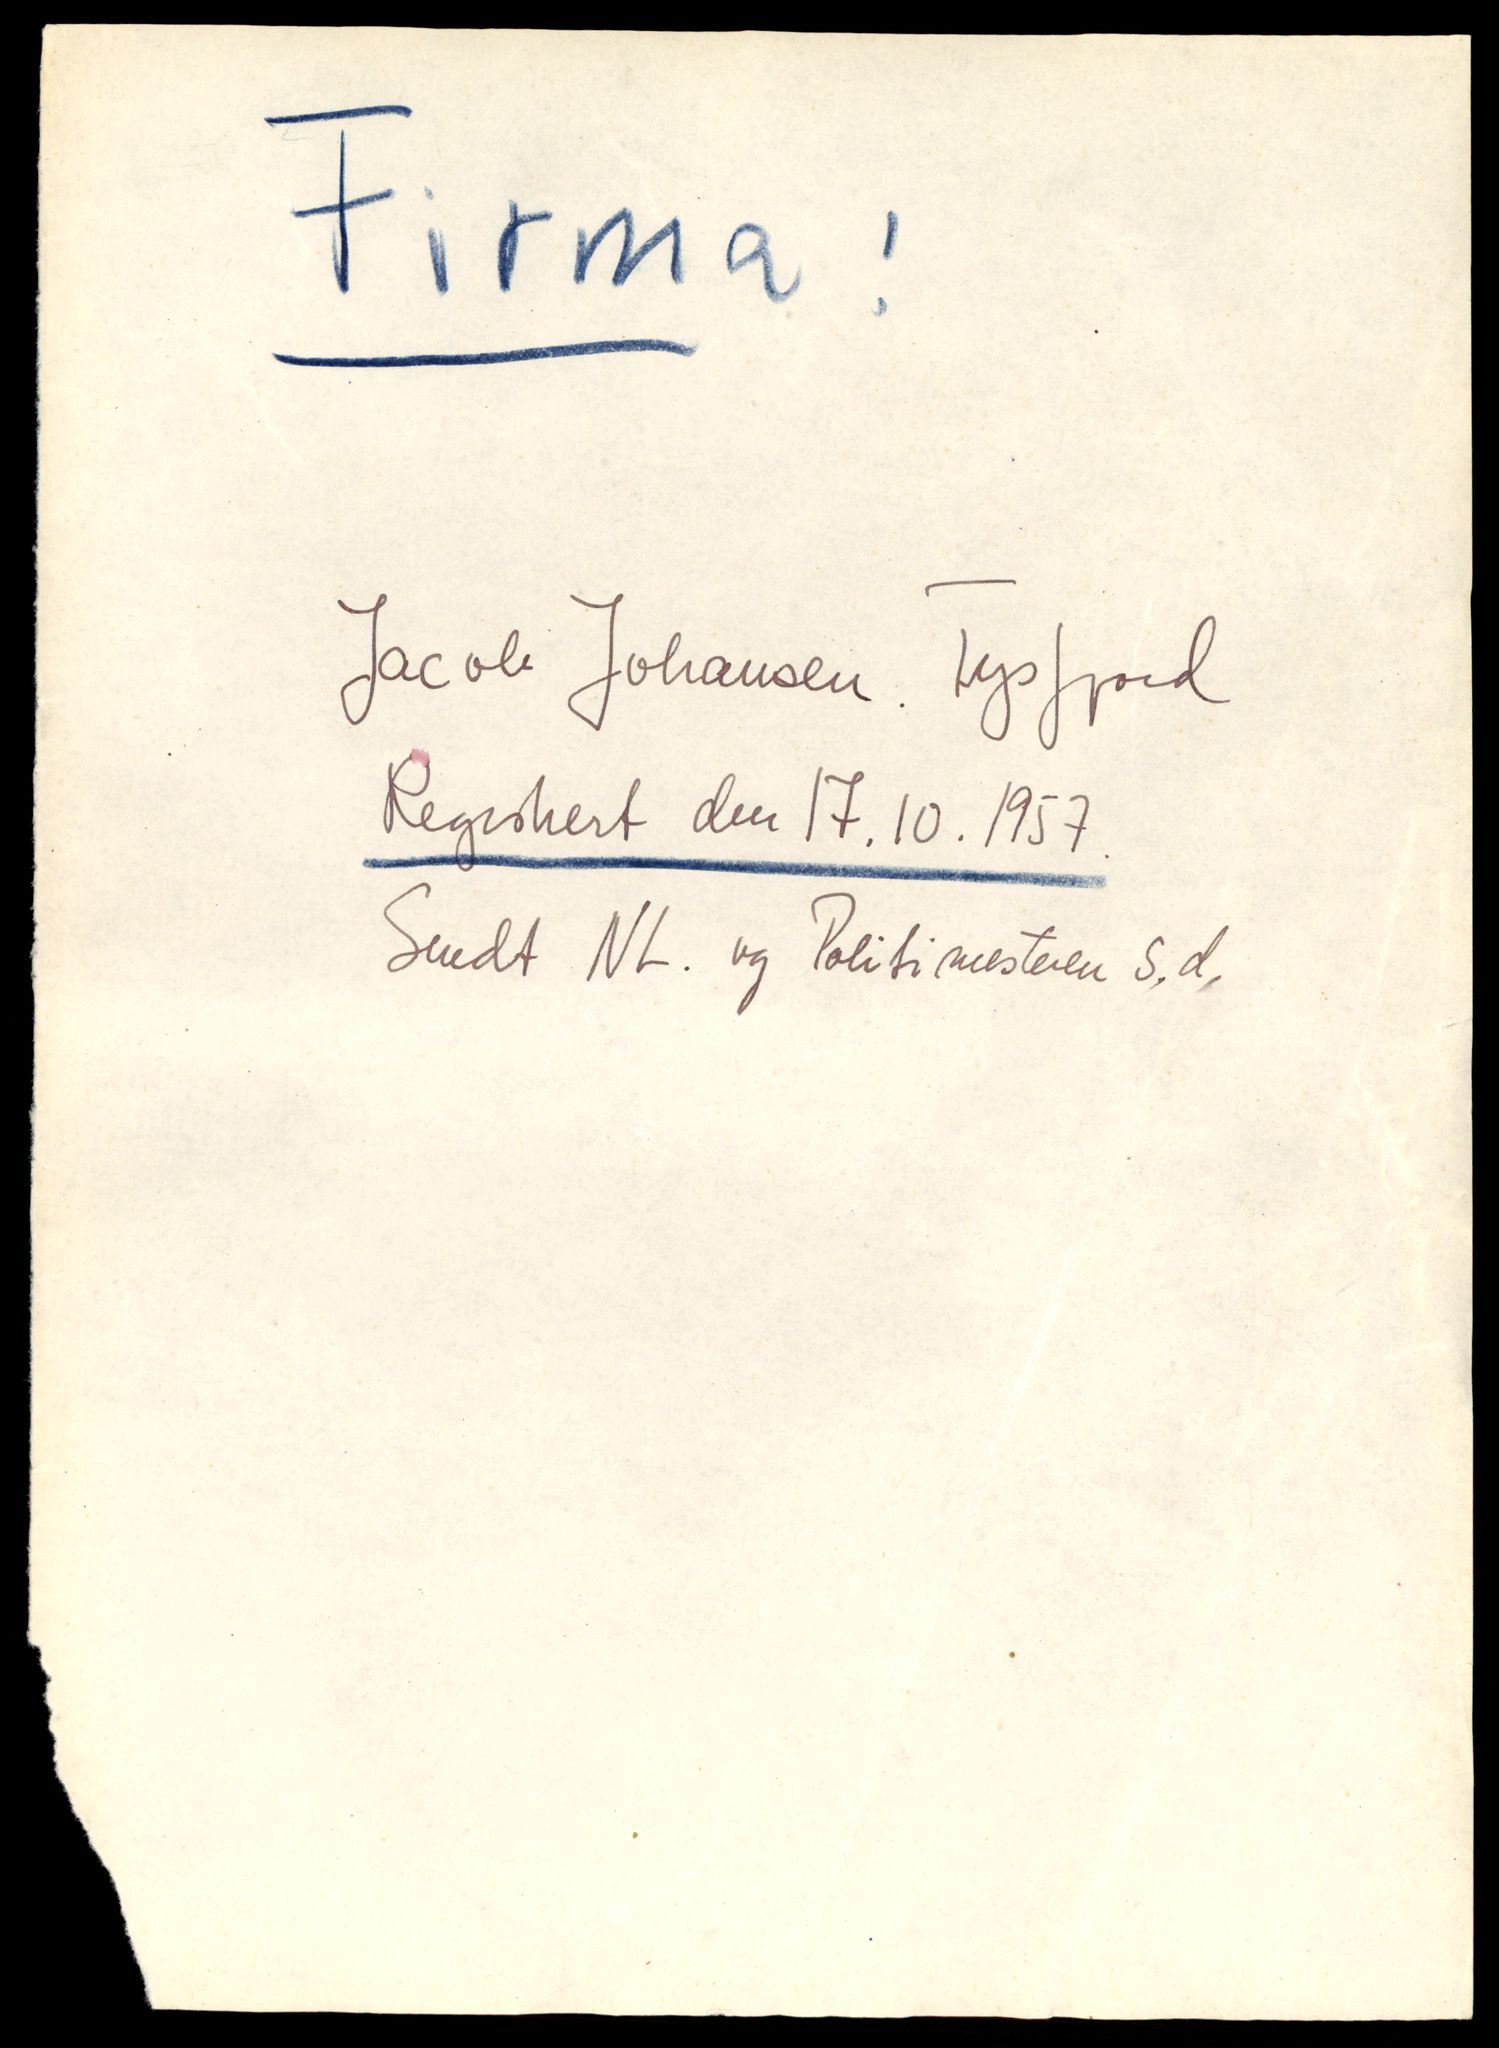 Firma!
Jacob Johansen. Tysfjord
Registrert den 17.10.1957.
Sendt NL. og Politimesteren s.d.